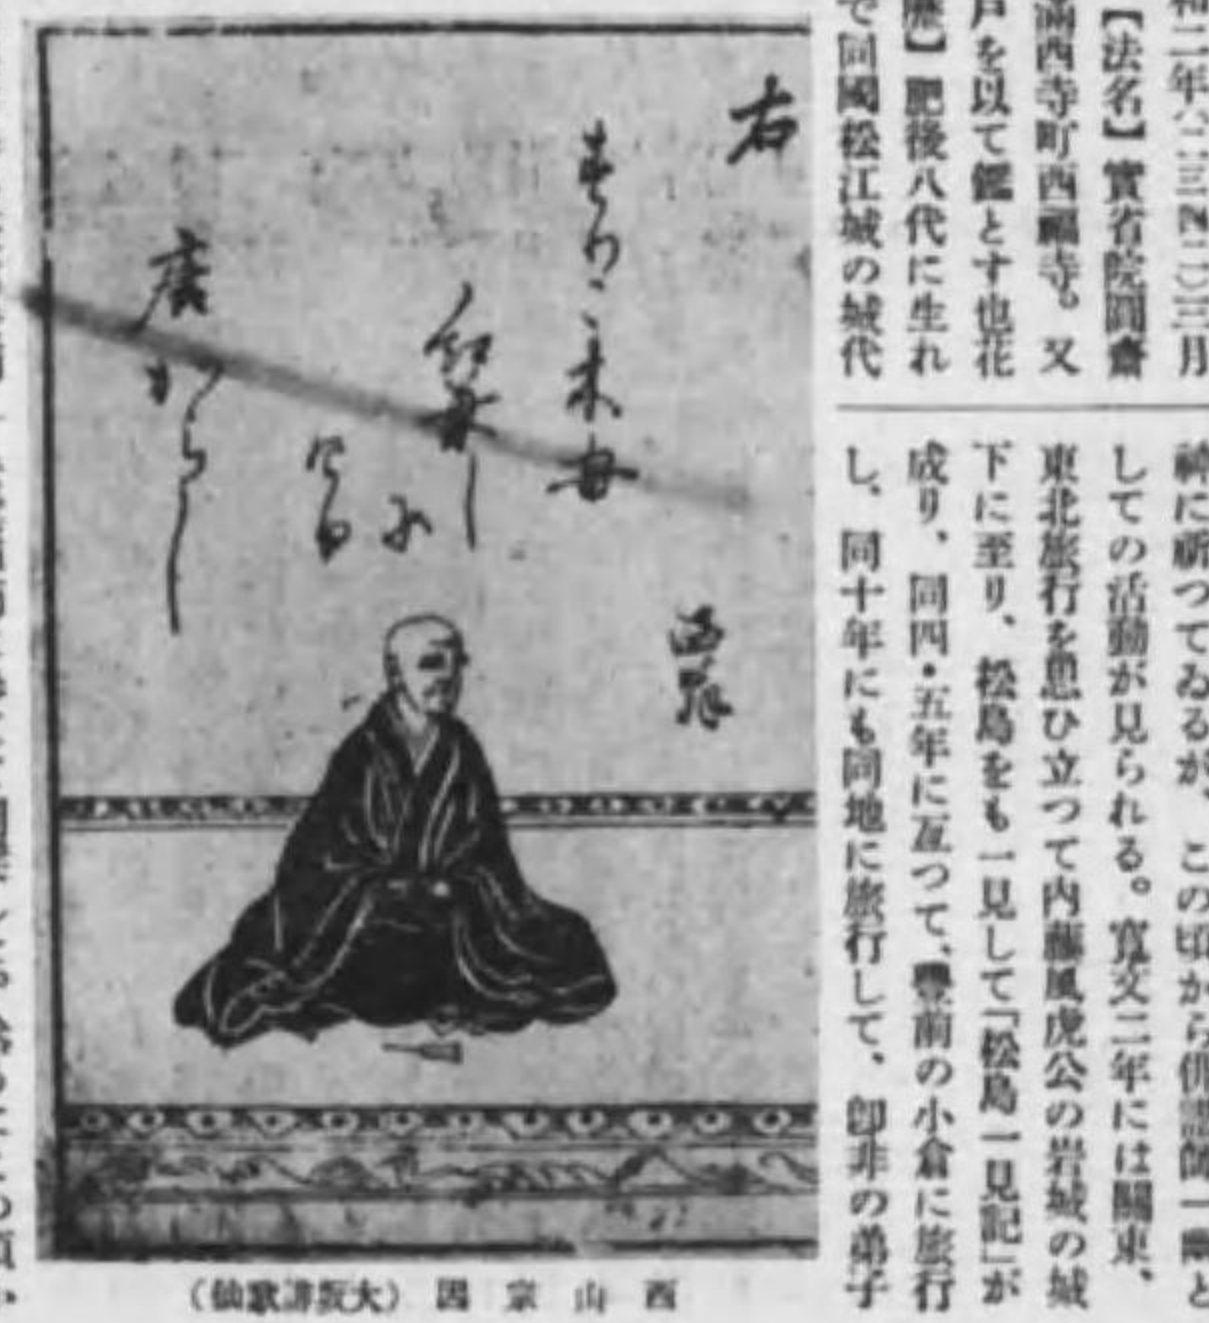 和二年(二三四二)三月
【法名】實省院圓齋
滿西寺町西福寺。又
戸を以て鑑とす也花
歴】肥後八代に生れ
で同國松江城の城代
神に祈つてゐるが、この頃から俳諧師一幽と
しての活動が見られる。寛文二年には關東、
東北旅行を思ひ立つて内藤風虎公の岩城の城
下に至り、松島をも一見して「松島一見記」が
成り、同四・五年に亙つて、豐前の小倉に旅行
し、同十年にも同地に旅行して、卽非の弟子
右
西翁
すりこ木も
紅葉し
に
けり
唐がらし
西山宗因(大阪誹歌仙)